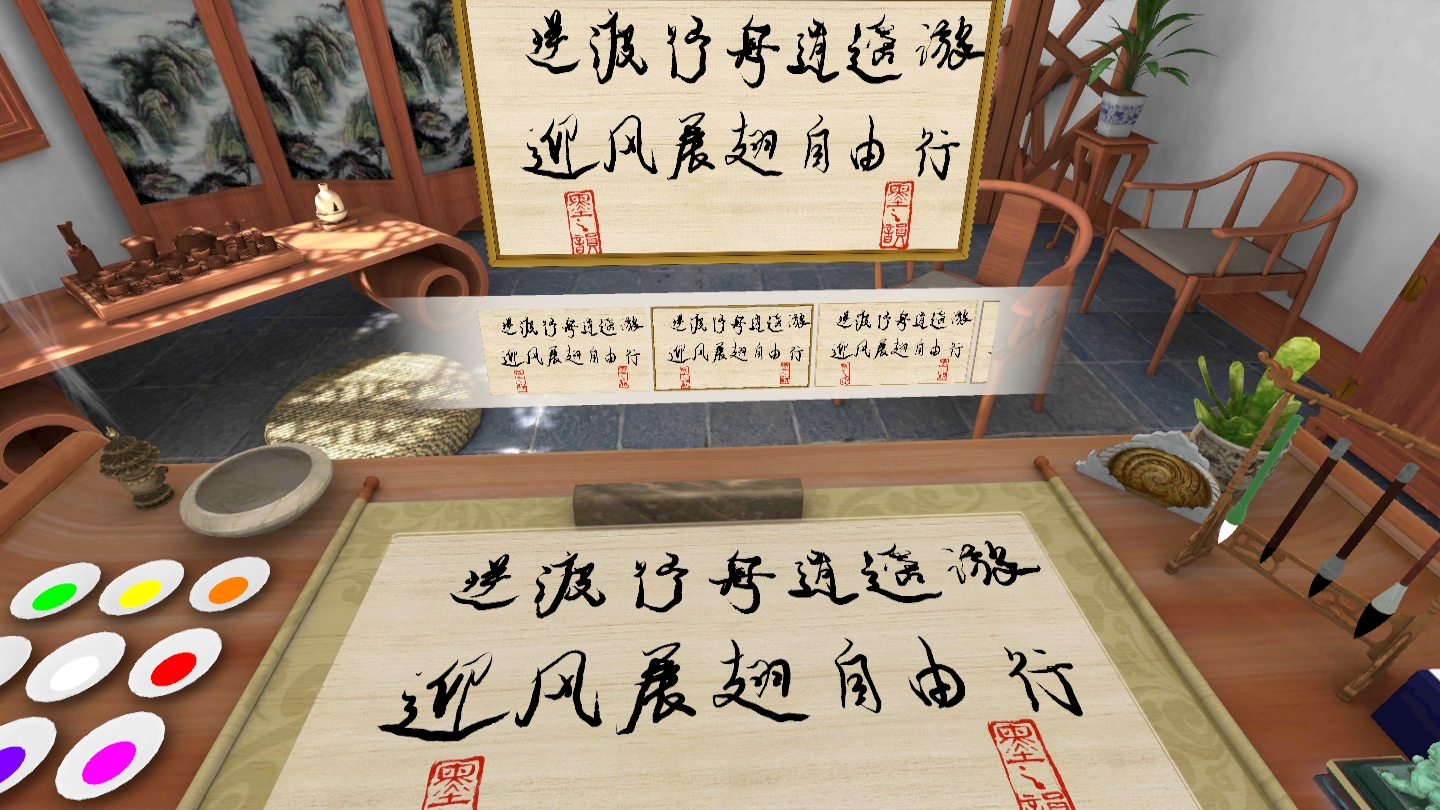 逆波行舟逍遥游
迎风展翅自由行
墨之韻
墨之韻
逆波行舟逍遥游
迎风展翅自由行
逆波行舟逍遥游
迎风展翅自由行
逆波行舟逍遥游
迎风展翅自由行
逆波行舟逍遥游
迎风展翅自由行
墨
墨之韻